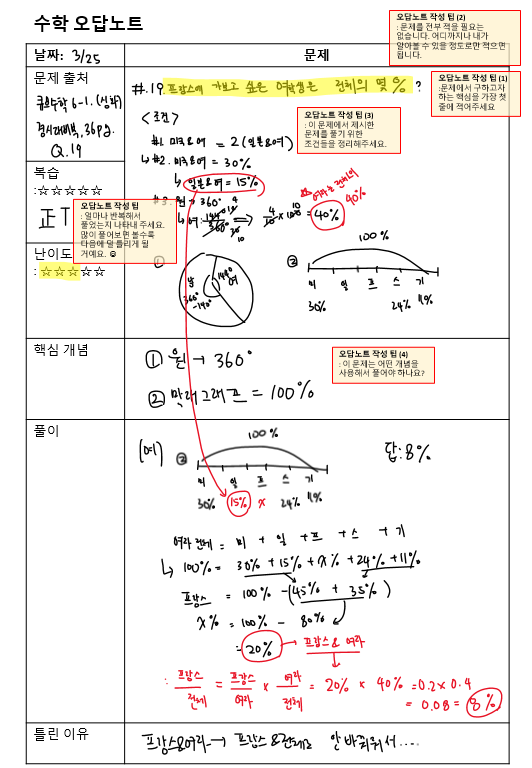 수학 오답노트
오답노트 작성 팁 (2)
: 문제를 전부 적을 필요는
없습니다. 어디까지나 내가
알아볼 수 있을 정도로만 적으면
됩니다.
날짜: 3/25
문제
문제 출처
#.19 프랑스에 가보고 싶은 여학생은 전체의 몇 % ?
오답노트 작성 팁 (1)
:문제에서 구하고자
하는 핵심을 가장 첫
줄에 적어주세요
6-1. (심화)
36pg.
Q.19
<조건>
오답노트 작성 팁 (3)
: 이 문제에서 제시한
문제를 풀기 위한
조건들을 정리해주세요.
#1. 미국&여 = 2(일본&여)
#2. 미국&여 = 30%
↳ 일본&여 = 15%
#3. 원 → 360°
↳ 여: 144°/360° ⇒ 4/10 × 100 = 40%
여자는 전체의
40%
복습
:☆☆☆☆☆
正 T
오답노트 작성 팁
: 얼마나 반복해서
풀었는지 나타내 주세요.
많이 풀어보면 볼수록
다음에 덜 틀리게 될
거예요. ☺
난이도
: ☆☆☆☆☆
①
남
360°
-144°
144°
여
②
100%
미 일 프 스 기
30% 24% 11%
핵심 개념
① 원 → 360°
② 막대그래프 = 100%
오답노트 작성 팁 (4)
: 이 문제는 어떤 개념을
사용해서 풀어야 하나요?
풀이
(여) ②
100%
답: 8%
미 일 프 스 기
30% 15% x 24% 11%
여자 전체 = 미 + 일 + 프 + 스 + 기
↳ 100% = 30% + 15% + x% + 24% + 11%
프랑스 = 100% - (45% + 35%)
x% = 100% - 80%
= 20% → 프랑스 & 여자
: 프랑스/전체 = 프랑스/여자 × 여자/전체 = 20% × 40% = 0.2 × 0.4
= 0.08 = 8%
틀린 이유
프랑스&여자 → 프랑스 &전체로 안 바꿔줘서.....